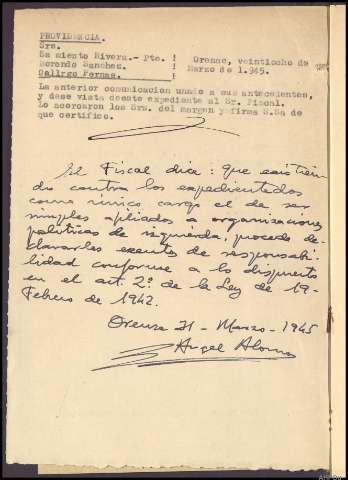 PROVIDENCIA.
Srs.
Sa miento Rivera.- Pte. ! Orense, veintiocho de
Borondo Sanchez. ! Marzo de 1.945.
Gallego Fermas. !
La anterior comunicacion unase a sus antecedentes,
y dese vista deeste expediente al Sr. Fiscal.
Lo acordaron los Srs. del margen y firma S.Sª de
que certifico.
El Fiscal dice: que existien
do contra los expedientados
como unico cargo el de ser
simples afiliados a organizaciones
politicas de izquierda, procede de-
clararles exentos de responsabi
lidad conforme a lo dispuesto
en el art. 2º. de la Ley de 19-
Febrero de 1942.
Orense 31 - Marzo - 1945
Angel Alonso